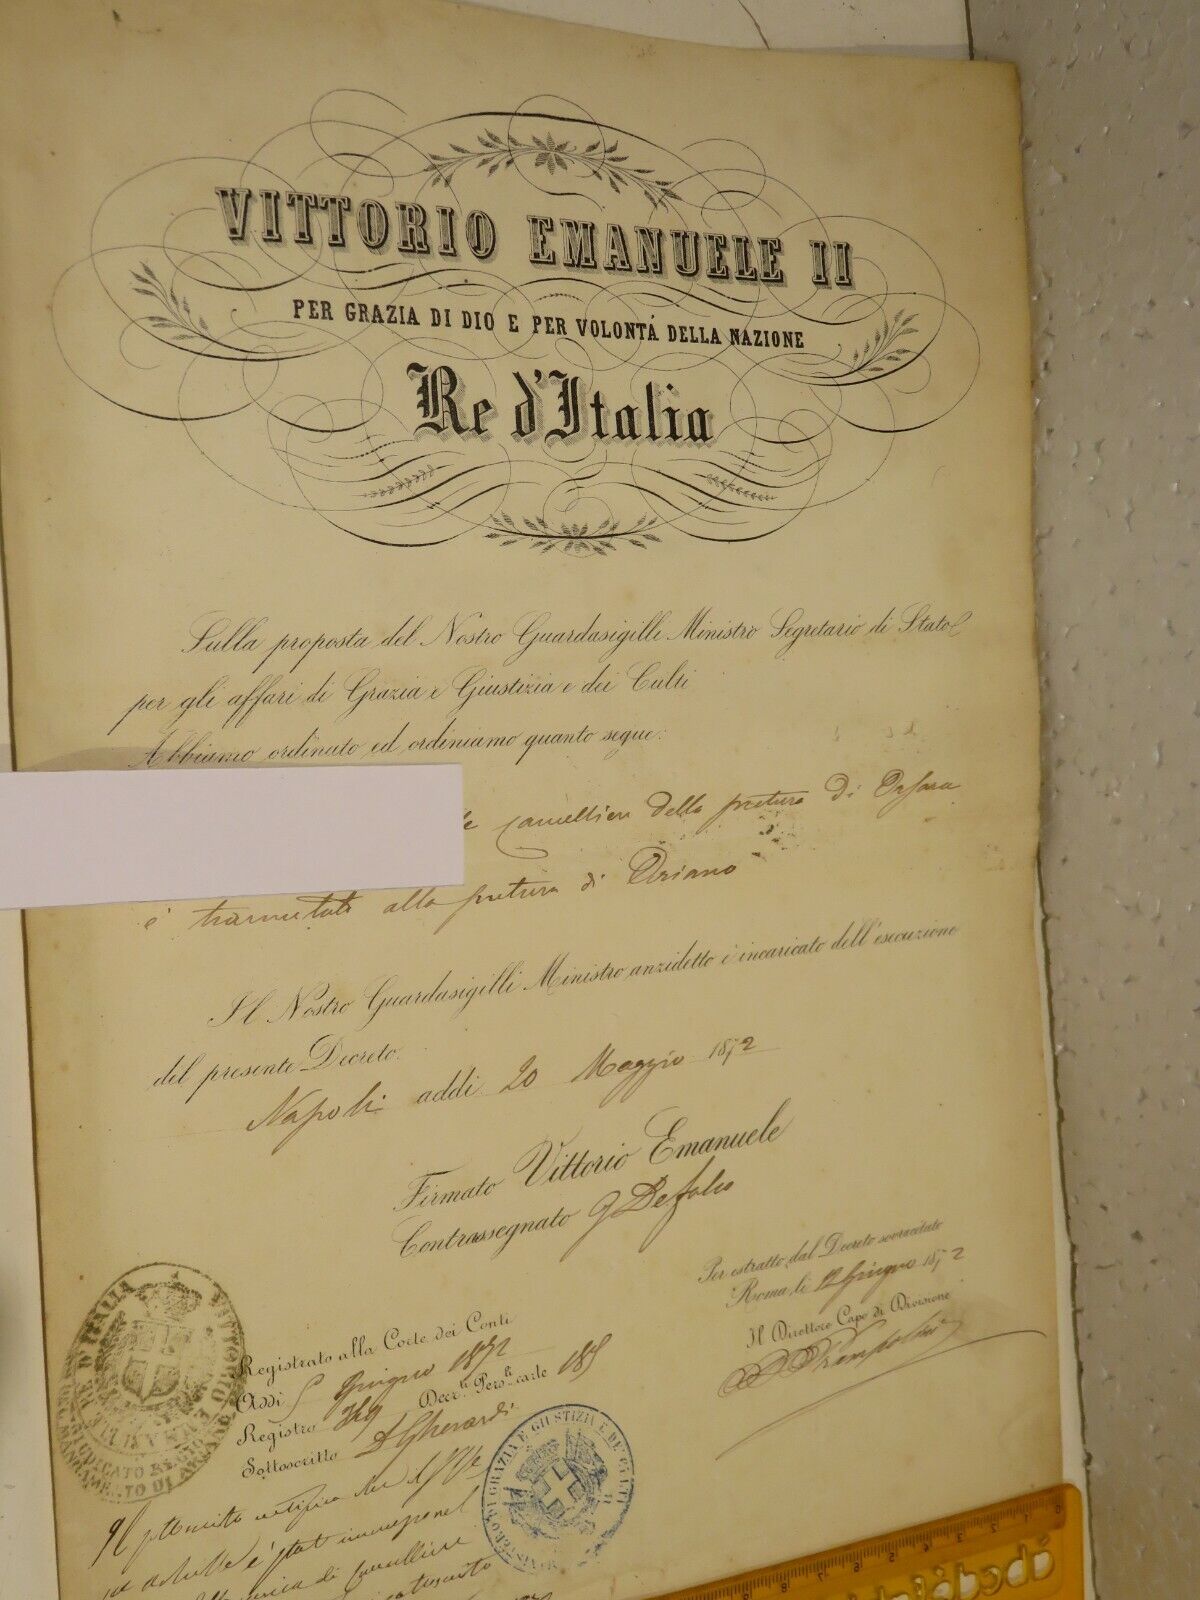 VITTORIO EMANUELE II
PER GRAZIA DI DIO E PER VOLONTÁ DELLA NAZIONE
Re d'Italia
Sulla proposta del Nostro Guardasigilli Ministro Segretario di Stato
per gli affari di Grazia e Giustizia e dei Culti
Abbiamo ordinato ed ordiniamo quanto segue:
cancelliere della pretura di Orsara
è tramutato alla pretura di Ariano
Il Nostro Guardasigilli Ministro anzidetto è incaricato dell'esecuzione
del presente Decreto.
Napoli addi 20 Maggio 1872
Firmato Vittorio Emanuele
Contrassegnato G Defalco
Per estratto dal Decreto sovracitato
Roma, li 12 Giugno 1872
Il Direttore Capo di Divisione
Registrato alla Corte dei Conti
Addi 5 Giugno 1872
Registro 369 Decr.ti Pers.li carte 185
Sottoscritto D Gherardi
VITTORIO EMANUELE II RE D'ITALIA
GIUDICATO REGIO
DEL MANDAMENTO DI
MINISTERO DI GRAZIA E GIUSTIZIA E DE' CULTI
Il sottoscritto certifica che
è stat
di Cancelliere